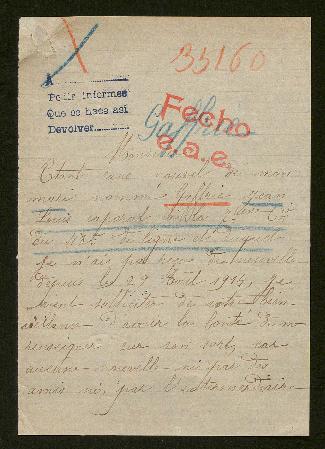 35160
A
Pedir informes
Que se hace así
Devolver
Fecho
e.a.e.
Gaffrie
Monsieur
Étant sans nouvel de mon
mari nommé Jean
Louis caporal
de ligne et
je n'ais pas reçu de nouvelle
depuis le 29 1914, je
vient sollicité de votre bien-
veillance d'avoir la bonté de m
renseigner sur son sort, car
aucune nouvelle ni par des
amis ni par l'